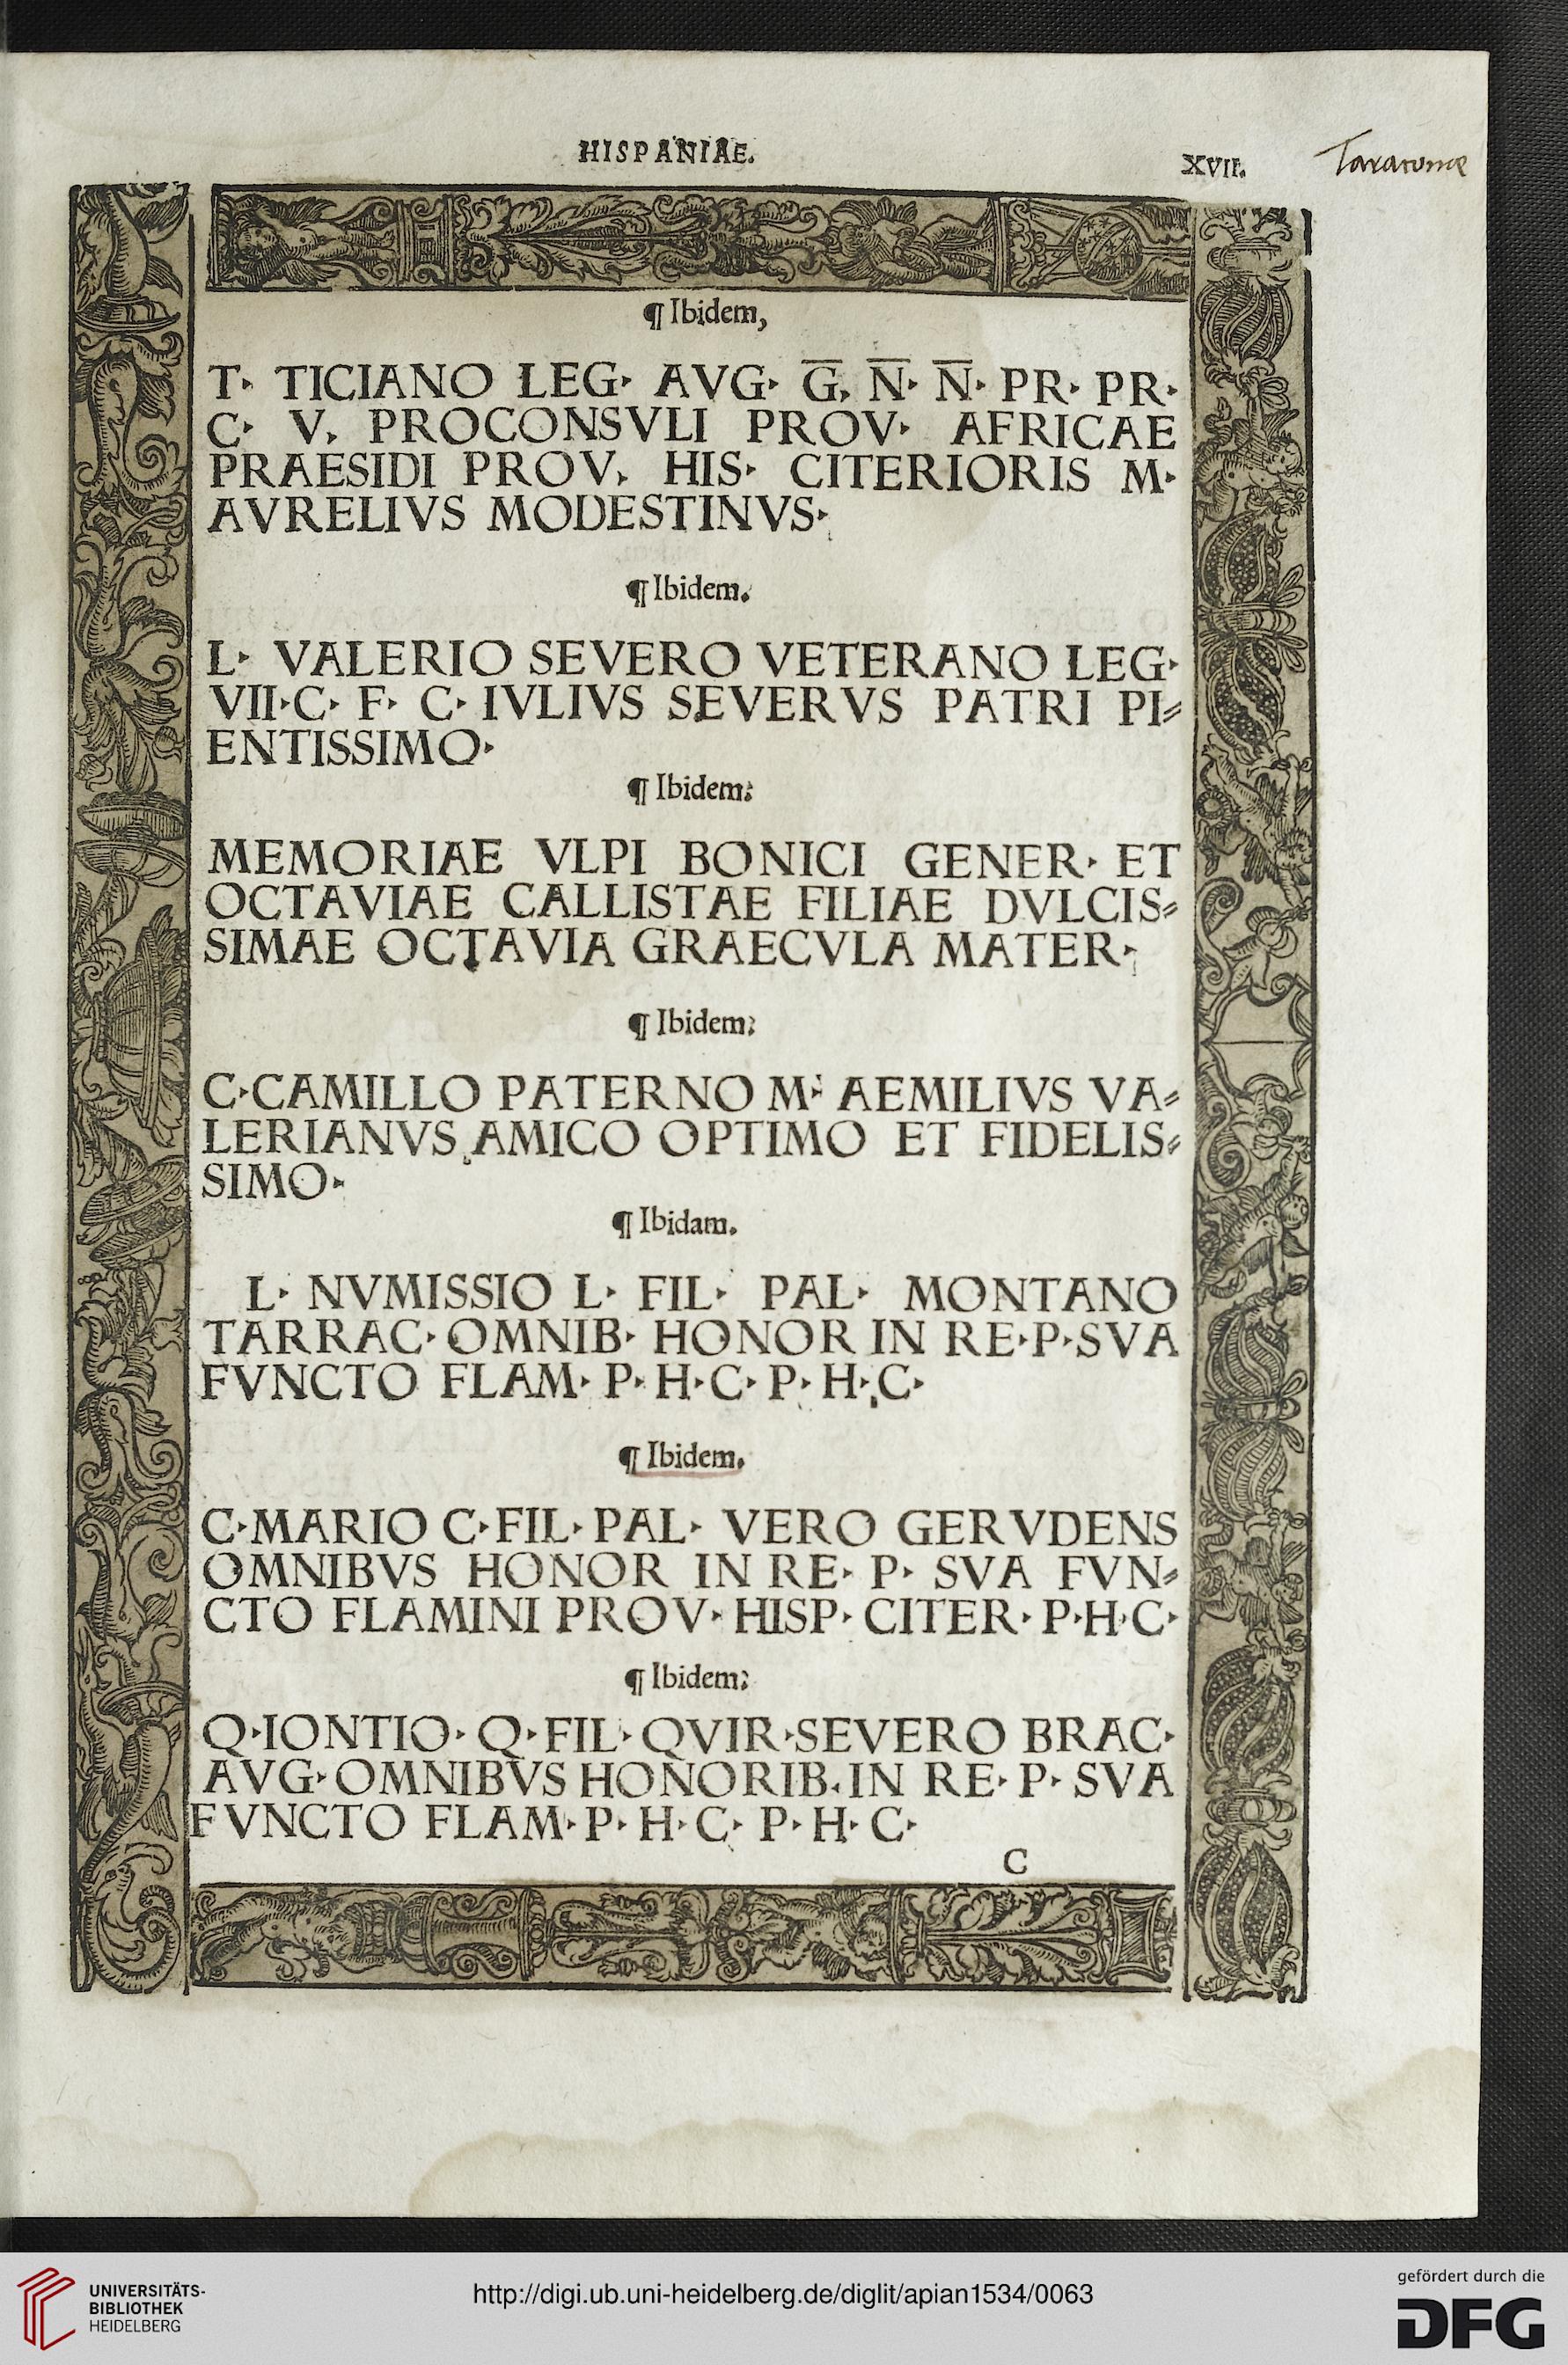 HISPANIAE.
XVII.
Taracone
¶ Ibidem,
T· TICIANO LEG· AVG· G̅, N̅· N̅· PR· PR·
C· V, PROCONSVLI PROV· AFRICAE
PRAESIDI PROV, HIS· CITERIORIS M·
AVRELIVS MODESTINVS·
¶ Ibidem.
L· VALERIO SEVERO VETERANO LEG·
VII·C· F· C· IVLIVS SEVERVS PATRI PI⸗
ENTISSIMO·
¶ Ibidem:
MEMORIAE VLPI BONICI GENER· ET
OCTAVIAE CALLISTAE FILIAE DVLCIS⸗
SIMAE OCTAVIA GRAECVLA MATER·
¶ Ibidem:
C·CAMILLO PATERNO M· AEMILIVS VA⸗
LERIANVS AMICO OPTIMO ET FIDELIS⸗
SIMO·
¶ Ibidam.
L· NVMISSIO L· FIL· PAL· MONTANO
TARRAC· OMNIB· HONOR IN RE·P·SVA
FVNCTO FLAM· P·H·C·P·H·C·
¶ Ibidem.
C·MARIO C·FIL·PAL· VERO GERVDENS
OMNIBVS HONOR IN RE· P· SVA FVN⸗
CTO FLAMINI PROV· HISP· CITER· P·H·C·
¶ Ibidem:
Q·IONTIO· Q·FIL·QVIR·SEVERO BRAC·
AVG·OMNIBVS HONORIB.IN RE·P· SVA
FVNCTO FLAM·P·H·C· P·H·C·
C
UNIVERSITÄTS-
BIBLIOTHEK
HEIDELBERG
http://digi.ub.uni-heidelberg.de/diglit/apian1534/0063
gefördert durch die
DFG